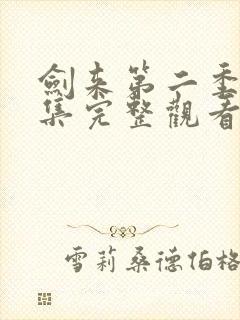 劍来第二季
集完整觀看
雪莉桑德伯格